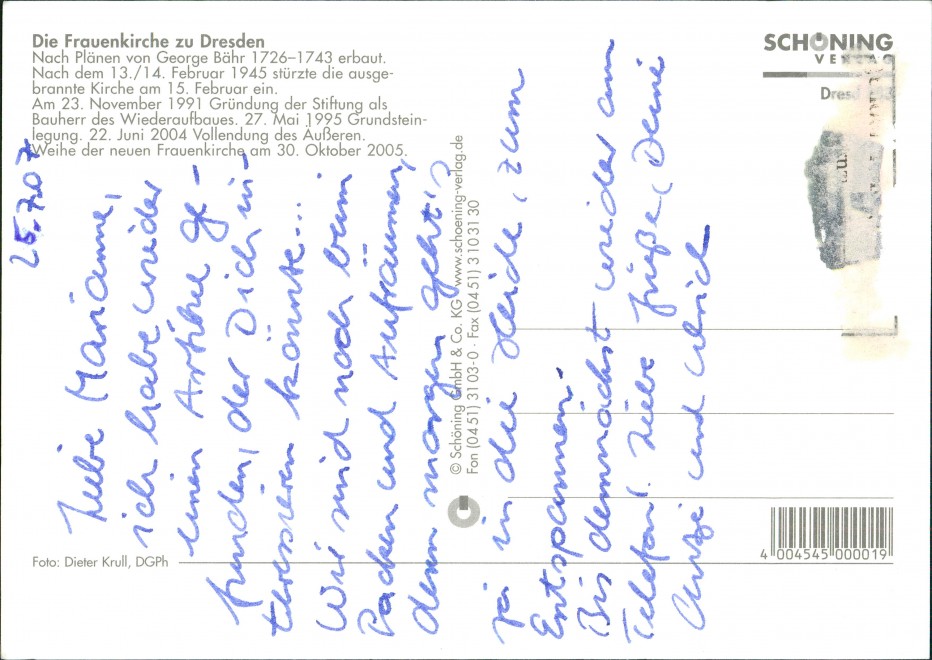 Die Frauenkirche zu Dresden
Nach Plänen von George Bähr 1726–1743 erbaut.
Nach dem 13./14. Februar 1945 stürzte die ausge-
brannte Kirche am 15. Februar ein.
Am 23. November 1991 Gründung der Stiftung als
Bauherr des Wiederaufbaues. 27. Mai 1995 Grundstein-
legung. 22. Juni 2004 Vollendung des Äußeren.
Weihe der neuen Frauenkirche am 30. Oktober 2005.
SCHÖNING
VERLAG
25.7.07
Liebe Marianne,
ich habe wieder
einen Artikel ge-
funden, der Dich in-
teressieren könnte...
Wir sind noch beim
Packen und Aufräumen,
denn morgen geht's
ja in die Heide, zum
Entspannen.
Bis demnächst wieder am
Telefon! Liebe Grüße, Deine
und Ulrich
© Schöning GmbH & Co. KG · www.schoening-verlag.de
Fon (04 51) 31 03-0 · Fax (04 51) 3 10 31 30
Foto: Dieter Krull, DGPh
4 004545 000019